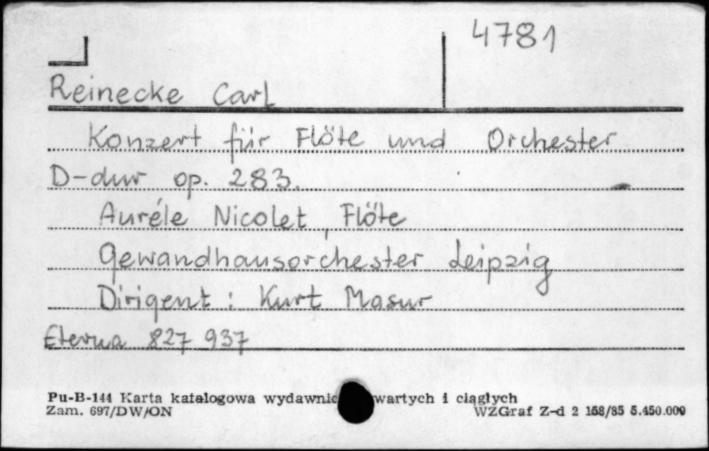 4781
Reinecke Carl
Konzert für Flöte und Orchester
D-dur op. 283.
Auréle Nicolet, Flöte
Gewandhausorchester Leipzig
Dirigent: Kurt Masur
Eterna 827 937
Pu-B-144 Karta katalogowa wydawnic wartych i ciągłych
Zam. 697/DW/ON WZGraf Z-d 2 158/85 5.450.000